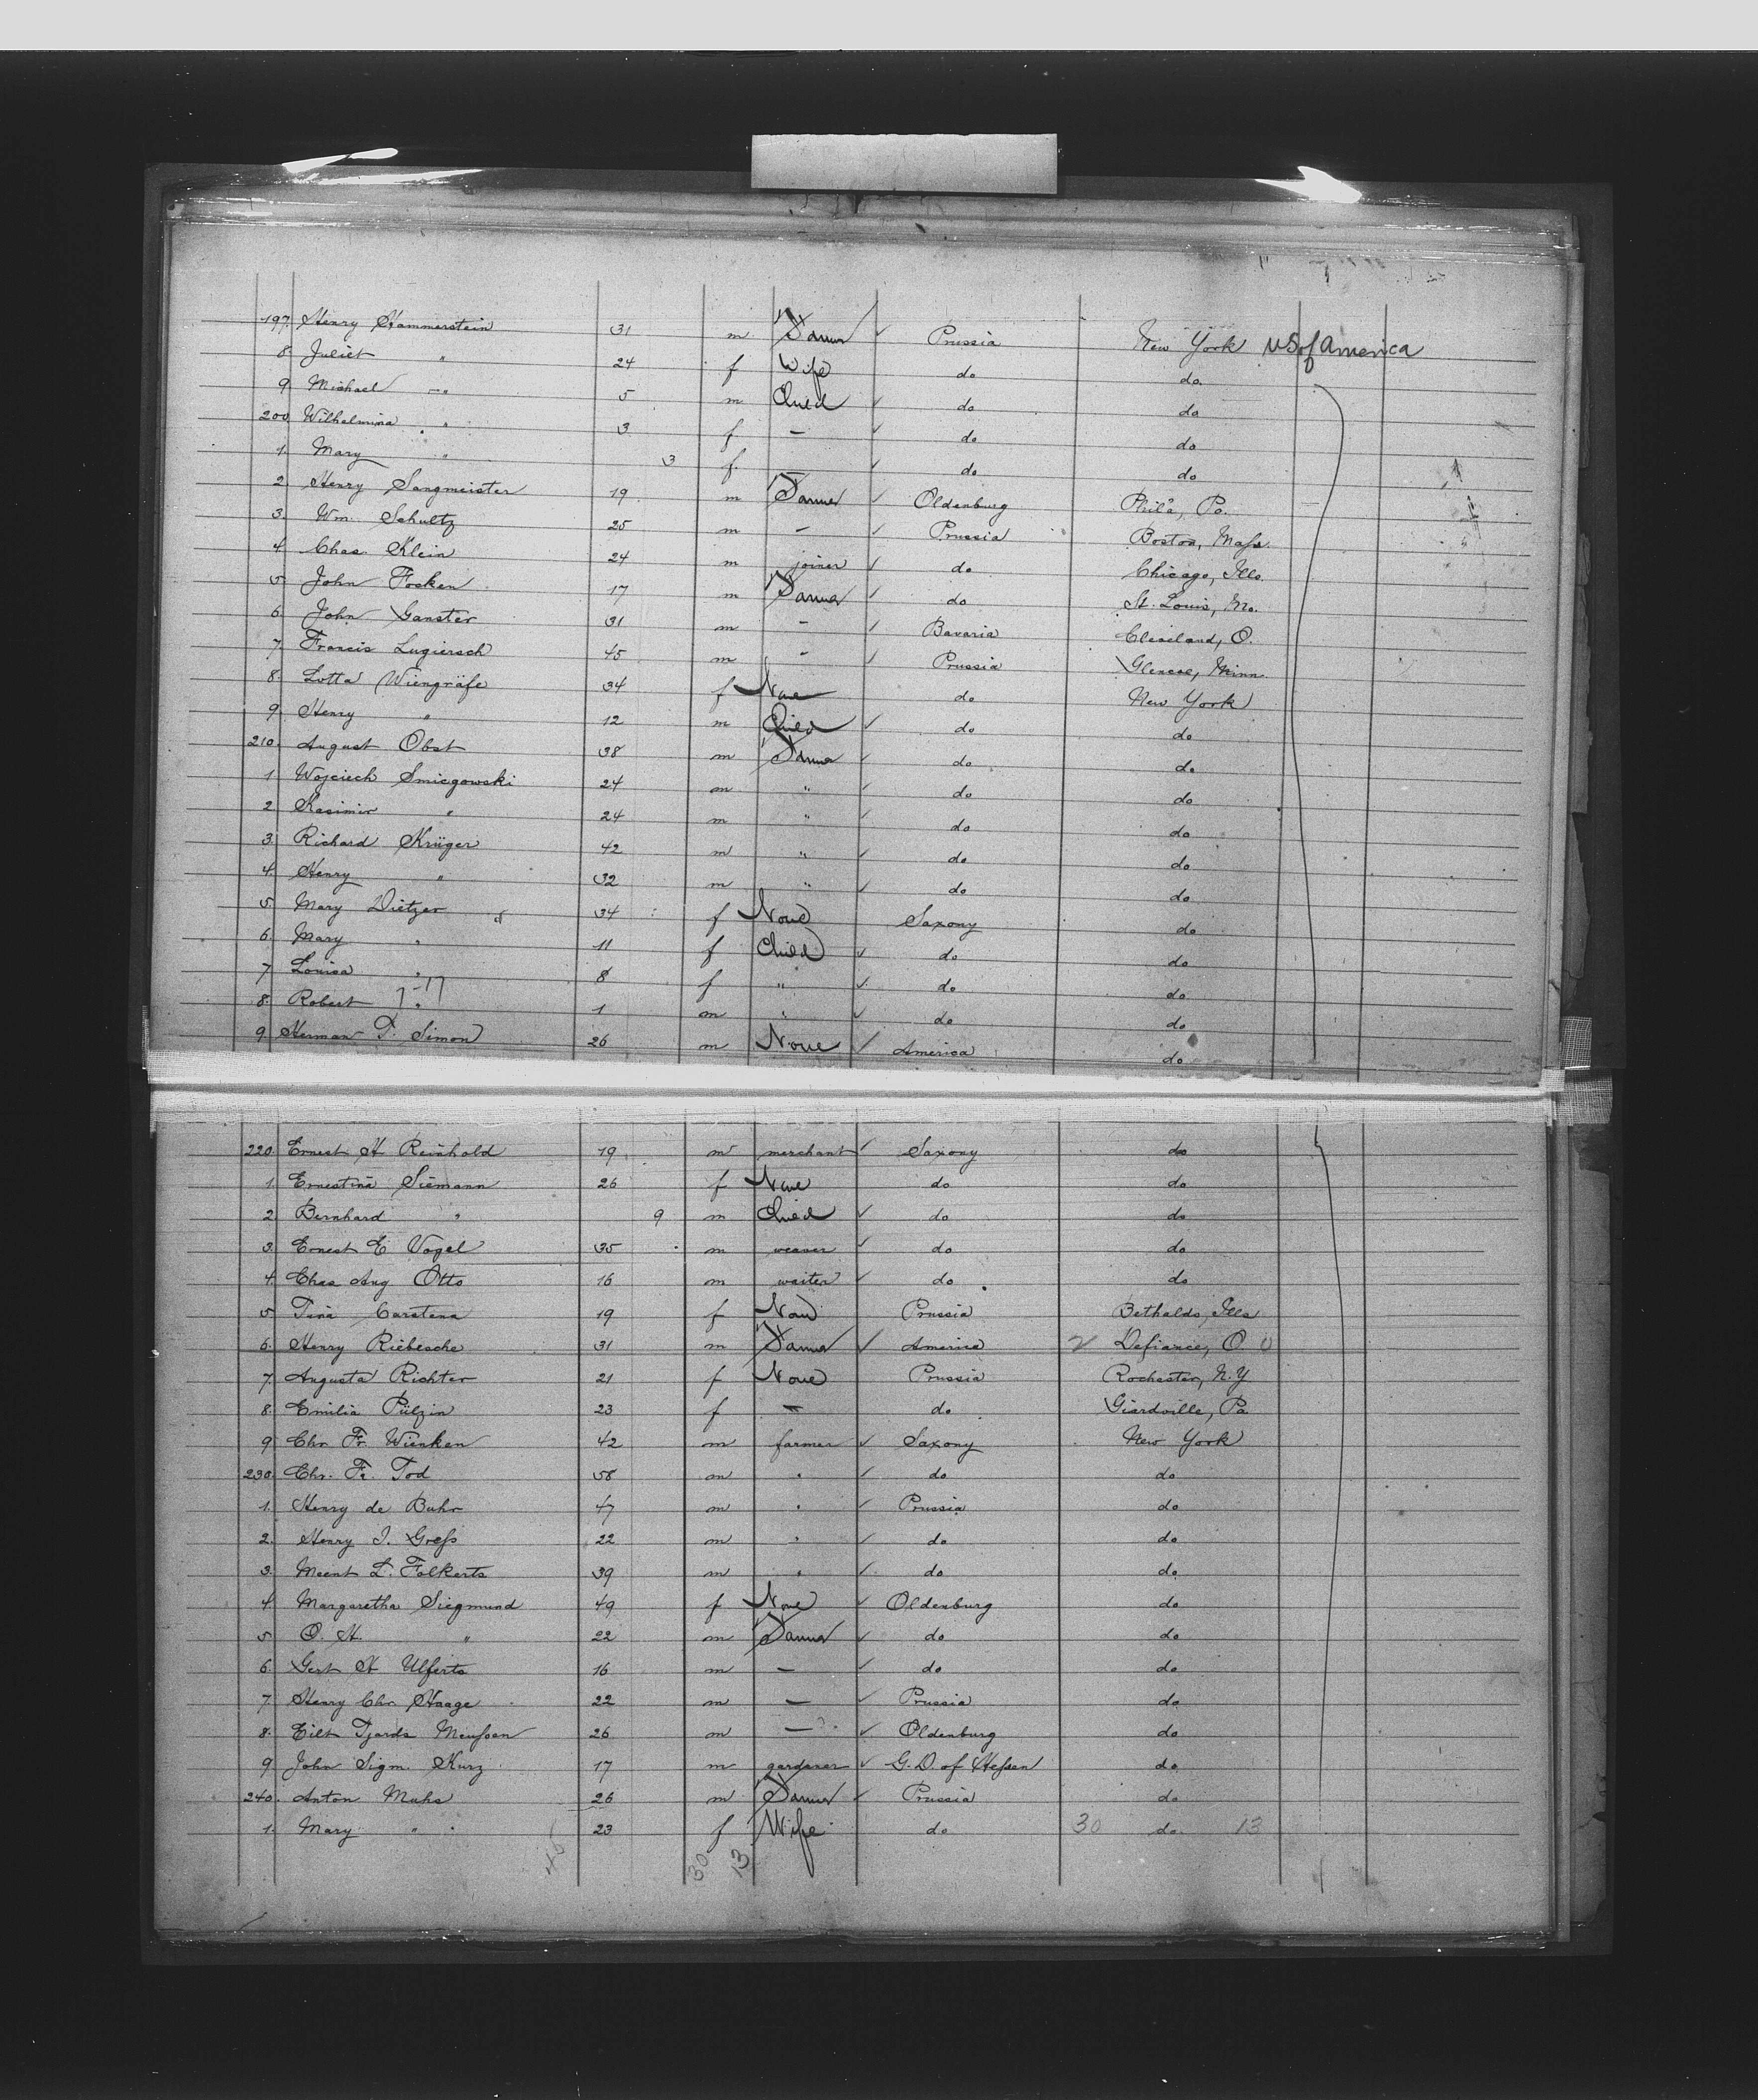 197. Henry Hammerstein 31 m Farmer ✓ Prussia New York U S of America
8. Juliet " 24 f Wife do do.
9. Michael " 5 m Child ✓ do do
200. Wilhelmina " 3 f — ✓ do do
1. Mary " 3 f. — ✓ do do
2. Henry Sangmeister 19 m Farmer ✓ Oldenburg Phila, Pa.
3. Wm. Schultz 25 m — ✓ Prussia Boston, Mass.
4. Chas. Klein 24 m joiner ✓ do Chicago, Ills.
5. John Focken 17 m Farmer ✓ do St. Louis, Mo.
6. John Ganster 31 m - ✓ Bavaria Cleveland, O.
7. Francis Lugiersch 45 m - ✓ Prussia Glencoe, Minn.
8. Lotta Wiengräfe 34 f None do New York
9. Henry " 12 m Child ✓ do do
210. August Obst 38 m Farmer ✓ do do
1. Wojciech Smiegowski 24 m " ✓ do do
2. Kasimir " 24 m " ✓ do do
3. Richard Krüger 42 m " ✓ do do
4. Henry " 32 m " ✓ do do
5. Mary Dietzer 34 f None Saxony do
6. Mary " 11 f Child ✓ do do
7. Louisa " 8 f " ✓ do do
8. Robert " 1 m " ✓ do do
9. Herman T. Simon 26 m None ✓ America do
220. Ernest H Reinhold 19 m merchant ✓ Saxony do
1. Ernestina Siemann 26 f None do do
2. Bernhard " 9 m Child ✓ do do
3. Ernest E Vogel 35 m weaver ✓ do do
4. Chas Aug. Otto 16 m waiter ✓ do do
5. Tina Carstena 19 f None Prussia Bethaldo, Ills
6. Henry Riebesche 31 m Farmer ✓ America Defiance, O.
7. Augusta Richter 21 f None Prussia Rochester, N.Y
8. Emilia Pülzin 23 f — do Giardville, Pa
9. Chr. Fr. Wienken 42 m farmer ✓ Saxony New York
230. Chr. Fr. Tod 58 m " ✓ do do
1. Henry de Buhr 47 m " ✓ Prussia do
2. Henry J. Gress 22 m " ✓ do do
3. Meent L. Folkerts 39 m " ✓ do do
4. Margaretha Siegmund 49 f None ✓ Oldenburg do
5. O. H. " 22 m Farmer ✓ do do
6. Gert H Ulferts 16 m — ✓ do do
7. Henry Chr. Haage 22 m — ✓ Prussia do
8. Eilt Tjards Meussen 26 m — ✓ Oldenburg do
9. John Sigm. Kurz 17 m gardener ✓ G. D. of Hessen do
240. Anton Muhs 26 m Farmer ✓ Prussia do
1. Mary " 23 f Wife do 30 do 13
30 13